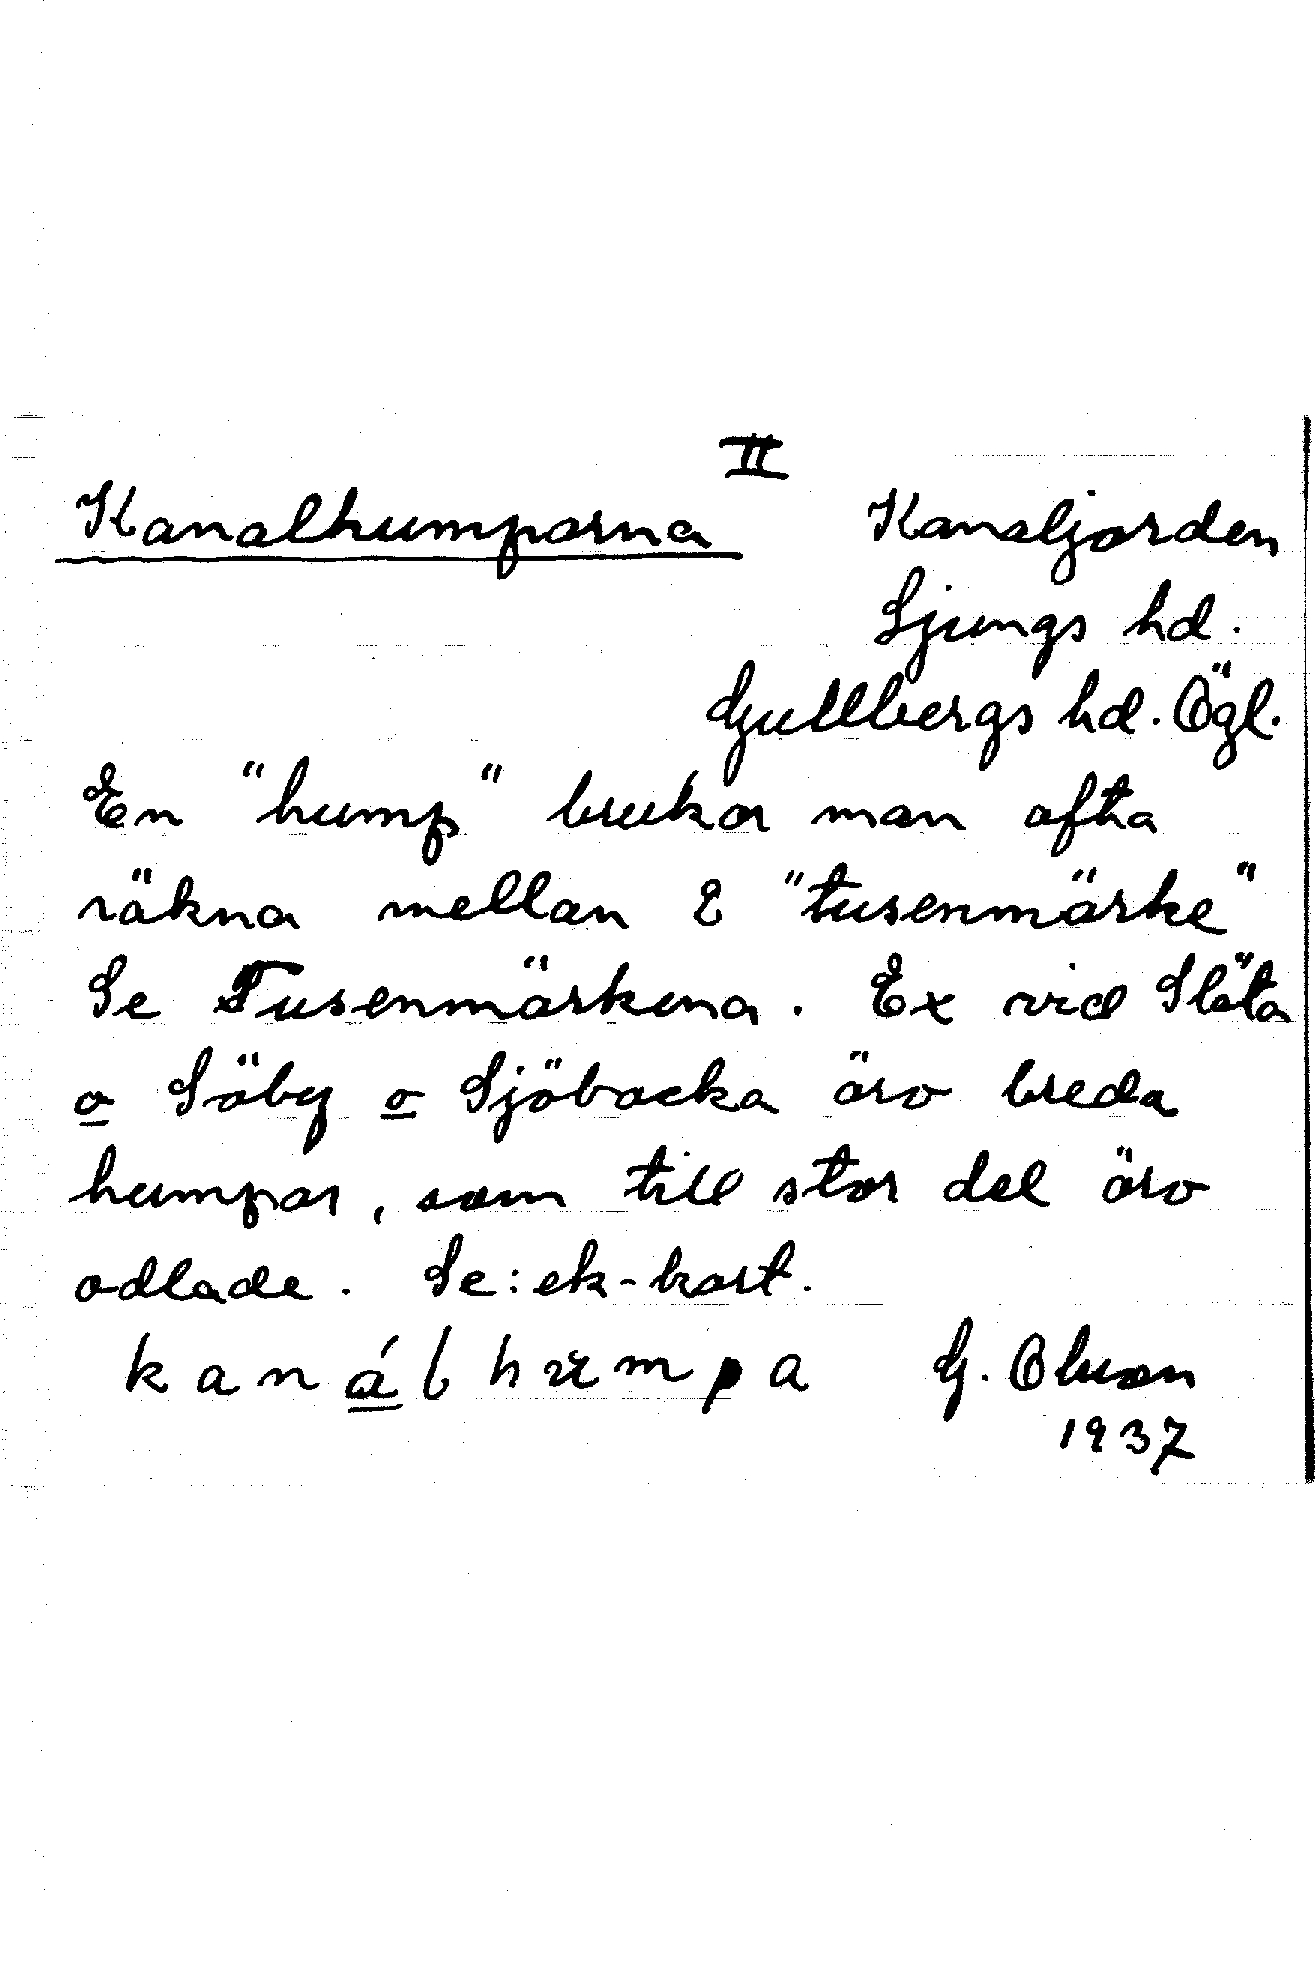 II
Kanalhumparna Kanaljorden
Ljungs hd.
Gullbergs hd. Ögl.
En "hump" brukar man ofta
räkna mellan 2 "tusenmärke"
Se Tusenmärkena. Ex vid Släta
o Söby o Sjöbacka äro breda
humpar, som till stor del äro
odlade. Se: ek-kart.
kanálhumpa G. Olsson
1937